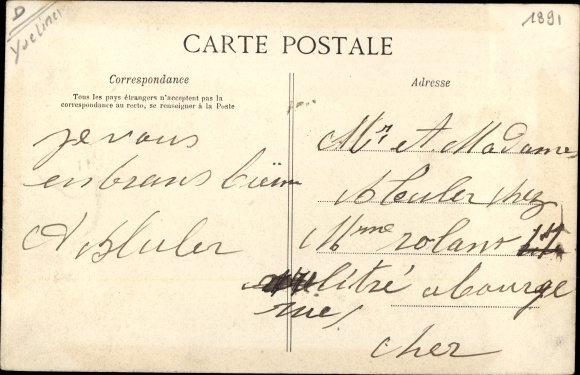 D
Yvelines
1891
CARTE POSTALE
Correspondance
Tous les pays étrangers n'acceptent pas la
correspondance au recto, se renseigner à la Poste
je vous
enbrans bien
Adresse
Mr et Madame
chez
Mme rolant
litré a bourge
rue
cher